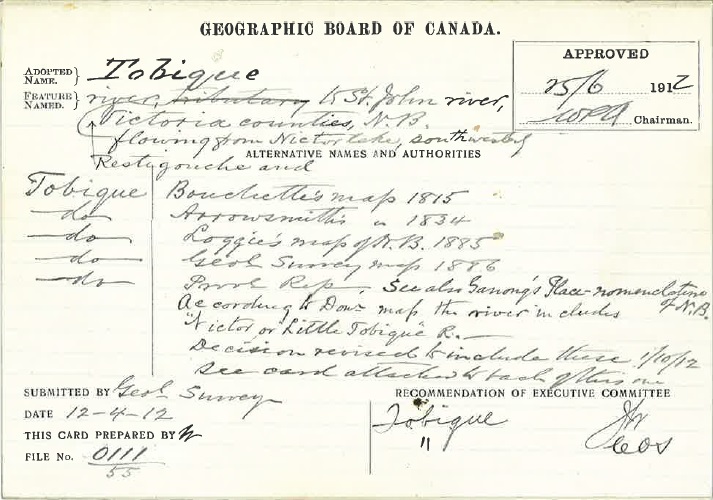 GEOGRAPHIC BOARD OF CANADA.
ADOPTED NAME. } Tobique
APPROVED
25/6 1912
Chairman.
FEATURE NAMED. } river, tributary to St. John river,
Victoria counties, N.B.
flowing from Nictor lake, southwesterly
ALTERNATIVE NAMES AND AUTHORITIES
Restigouche and
Tobique Bouchette's map 1815
do Arrowsmith's " 1834
do Loggie's map of N.B. 1885
do Geol. Survey map 1886
do Provl Rep. See also Ganong's Place-nomenclature of N.B.
According to Dom. map the river includes
"Nictor or Little Tobique R.
Decision revised to include these 1/10/12
See card attached to back of this one
SUBMITTED BY Geol. Survey
DATE 12-4-12
THIS CARD PREPARED BY
FILE No. 0111
55
RECOMMENDATION OF EXECUTIVE COMMITTEE
Tobique
"